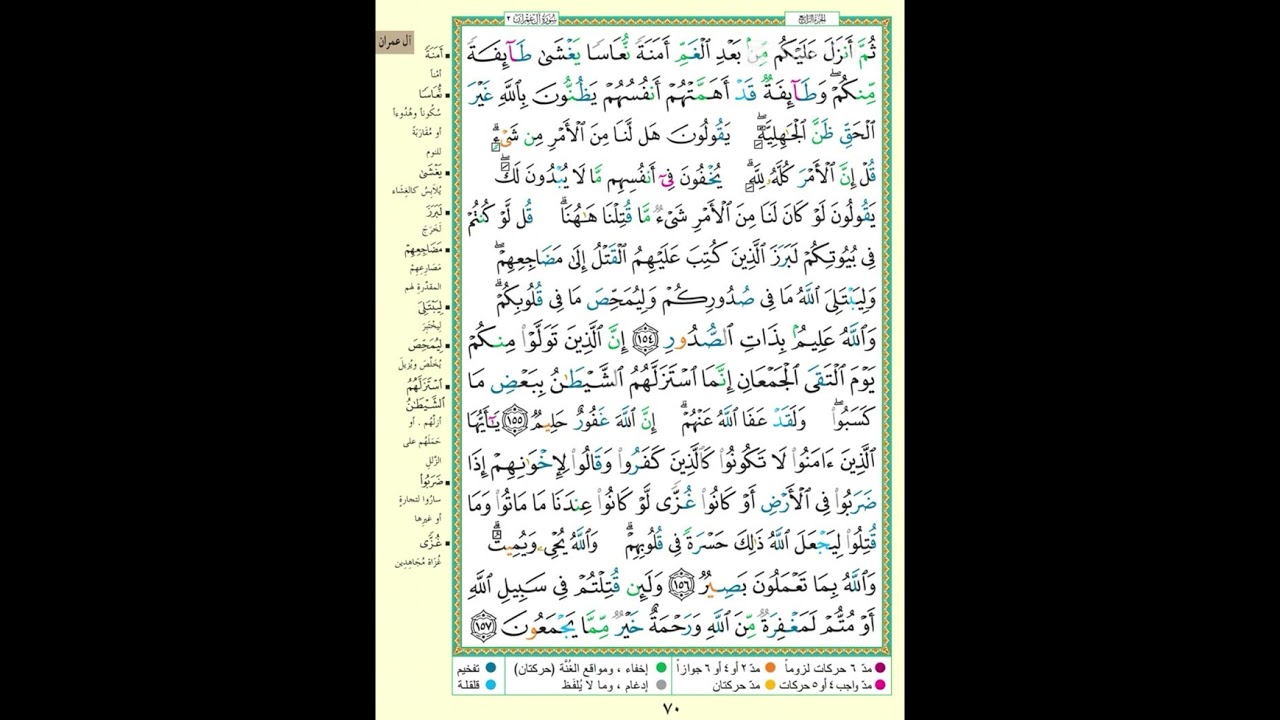 سورة آل عمران ٣
الجزء الرابع
آل عمران
ثُمَّ أَنزَلَ عَلَيْكُم مِّنۢ بَعْدِ ٱلْغَمِّ أَمَنَةً نُّعَاسًا يَغْشَىٰ طَآئِفَةً
مِّنكُمْ ۖ وَطَآئِفَةٌ قَدْ أَهَمَّتْهُمْ أَنفُسُهُمْ يَظُنُّونَ بِٱللَّهِ غَيْرَ
ٱلْحَقِّ ظَنَّ ٱلْجَٰهِلِيَّةِ ۖ يَقُولُونَ هَل لَّنَا مِنَ ٱلْأَمْرِ مِن شَىْءٍ ۗ
قُلْ إِنَّ ٱلْأَمْرَ كُلَّهُۥ لِلَّهِ ۗ يُخْفُونَ فِىٓ أَنفُسِهِم مَّا لَا يُبْدُونَ لَكَ ۖ
يَقُولُونَ لَوْ كَانَ لَنَا مِنَ ٱلْأَمْرِ شَىْءٌ مَّا قُتِلْنَا هَٰهُنَا ۗ قُل لَّوْ كُنتُمْ
فِى بُيُوتِكُمْ لَبَرَزَ ٱلَّذِينَ كُتِبَ عَلَيْهِمُ ٱلْقَتْلُ إِلَىٰ مَضَاجِعِهِمْ ۖ
وَلِيَبْتَلِىَ ٱللَّهُ مَا فِى صُدُورِكُمْ وَلِيُمَحِّصَ مَا فِى قُلُوبِكُمْ ۗ
وَٱللَّهُ عَلِيمٌۢ بِذَاتِ ٱلصُّدُورِ ١٥٤ إِنَّ ٱلَّذِينَ تَوَلَّوْا۟ مِنكُمْ
يَوْمَ ٱلْتَقَى ٱلْجَمْعَانِ إِنَّمَا ٱسْتَزَلَّهُمُ ٱلشَّيْطَٰنُ بِبَعْضِ مَا
كَسَبُوا۟ ۖ وَلَقَدْ عَفَا ٱللَّهُ عَنْهُمْ ۗ إِنَّ ٱللَّهَ غَفُورٌ حَلِيمٌ ١٥٥ يَٰٓأَيُّهَا
ٱلَّذِينَ ءَامَنُوا۟ لَا تَكُونُوا۟ كَٱلَّذِينَ كَفَرُوا۟ وَقَالُوا۟ لِإِخْوَٰنِهِمْ إِذَا
ضَرَبُوا۟ فِى ٱلْأَرْضِ أَوْ كَانُوا۟ غُزًّى لَّوْ كَانُوا۟ عِندَنَا مَا مَاتُوا۟ وَمَا
قُتِلُوا۟ لِيَجْعَلَ ٱللَّهُ ذَٰلِكَ حَسْرَةً فِى قُلُوبِهِمْ ۗ وَٱللَّهُ يُحْىِۦ وَيُمِيتُ ۗ
وَٱللَّهُ بِمَا تَعْمَلُونَ بَصِيرٌ ١٥٦ وَلَئِن قُتِلْتُمْ فِى سَبِيلِ ٱللَّهِ
أَوْ مُتُّمْ لَمَغْفِرَةٌ مِّنَ ٱللَّهِ وَرَحْمَةٌ خَيْرٌ مِّمَّا يَجْمَعُونَ ١٥٧
أَمَنَةً
أمناً
نُّعَاسًا
سُكوناً وهُدُوءاً
أو مُقاربَةً
للنوم
يَغْشَىٰ
يُلابِسُ كالغِشاء
لَبَرَزَ
لَخَرَجَ
مَضَاجِعِهِمْ
مَصَارِعِهِمْ
المقدَّرةِ لهم
لِيَبْتَلِىَ
لِيَخْتَبِرَ
لِيُمَحِّصَ
يُخَلِّصَ ويُزيلَ
ٱسْتَزَلَّهُمُ
ٱلشَّيْطَٰنُ
أزلَّهُم . أو
حَمَلَهُم على
الزَّلَلِ
ضَرَبُوا۟
سارُوا لتجارةٍ
أو غيرِها
غُزًّى
غُزاة مُجَاهِدِين
مدّ ٦ حركات لزوماً
مدّ ٢ أو ٤ أو ٦ جوازاً
إخفاء ، ومواقع الغُنَّة (حركتان)
تفخيم
مدّ واجب ٤ أو ٥ حركات
مدّ حركتان
إدغام ، وما لا يُلفَظ
قلقلة
٧٠